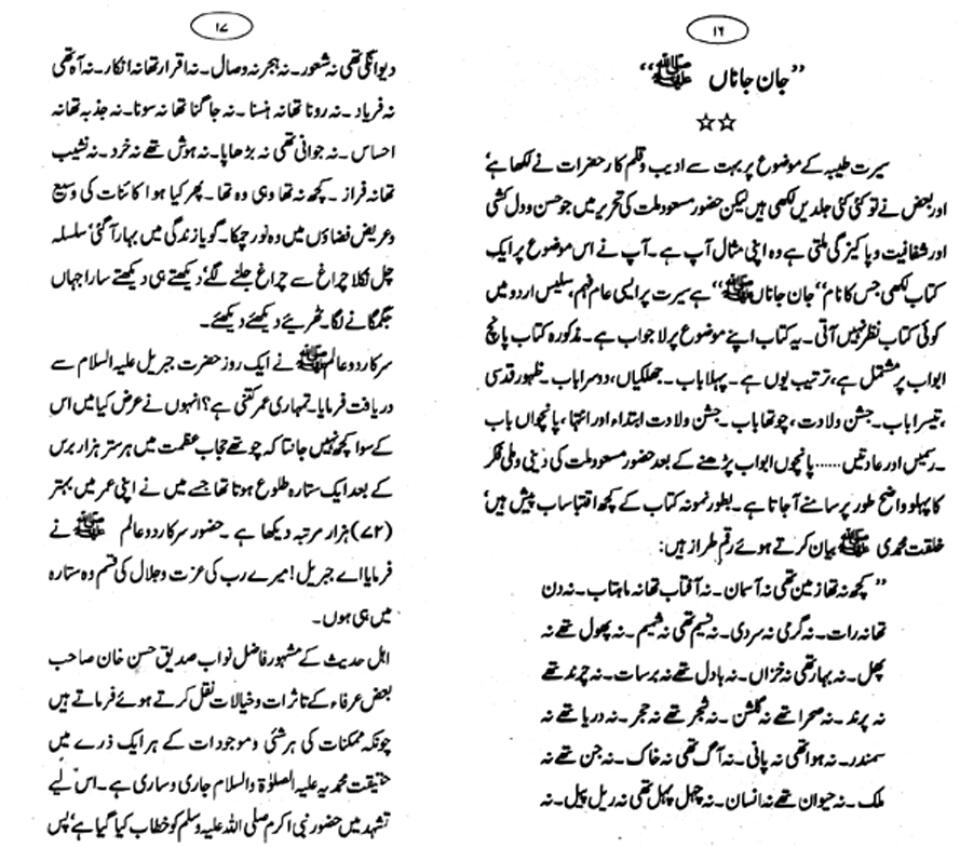 ۱۶
”جان جاناں ﷺ“
☆☆
سیرت طیبہ کے موضوع پر بہت سے ادیب و قلم کار حضرات نے لکھا ہے'
اور بعض نے تو کئی کئی جلدیں لکھی ہیں لیکن حضور مسعود ملت کی تحریر میں جو حسن و دل کشی
اور شفافیت و پاکیزگی ملتی ہے وہ اپنی مثال آپ ہے۔ آپ نے اس موضوع پر ایک
کتاب لکھی جس کا نام ”جان جاناں ﷺ“ ہے سیرت پر ایسی عام فہم، سلیس اردو میں
کوئی کتاب نظر نہیں آتی۔ یہ کتاب اپنے موضوع پر لا جواب ہے۔ مذکورہ کتاب پانچ
ابواب پر مشتمل ہے، ترتیب یوں ہے۔ پہلا باب۔ جھلکیاں، دوسرا باب۔ ظہور قدسی
،تیسرا باب۔ جشن ولادت، چوتھا باب۔ جشن ولادت ابتداء اور انتہا، پانچواں باب
۔رسمیں اور عادتیں ...... پانچوں ابواب پڑھنے کے بعد حضور مسعود ملت کی دینی و ملی فکر
کا پہلو واضح طور پر سامنے آجاتا ہے۔ بطور نمونہ کتاب کے کچھ اقتباسات پیش ہیں'
خلقت محمدی ﷺ بیان کرتے ہوئے رقم طراز ہیں:
” کچھ نہ تھا زمین تھی نہ آسمان۔ نہ آفتاب تھا نہ ماہتاب۔ نہ دن
تھا نہ رات۔ نہ گرمی نہ سردی۔ نہ نسیم تھی نہ شمیم۔ نہ پھول تھے نہ
پھل۔ نہ بہار تھی نہ خزاں۔ نہ بادل تھے نہ برسات۔ نہ چرند تھے
نہ پرند۔ نہ صحرا تھے نہ گلشن۔ نہ شجر تھے نہ حجر۔ نہ دریا تھے نہ
سمندر۔ نہ ہوا تھی نہ پانی۔ نہ آگ تھی نہ خاک۔ نہ جن تھے نہ
ملک۔ نہ حیوان تھے نہ انسان۔ نہ چہل پہل تھی نہ ریل پیل۔ نہ
۱۷
دیوانگی تھی نہ شعور۔ نہ ہجر نہ وصال۔ نہ اقرار تھا نہ انکار۔ نہ آہ تھی
نہ فریاد۔ نہ رونا تھا نہ ہنسنا۔ نہ جاگنا تھا نہ سونا۔ نہ جذبہ تھا نہ
احساس۔ نہ جوانی تھی نہ بڑھاپا۔ نہ ہوش تھے نہ خرد۔ نہ نشیب
تھا نہ فراز۔ کچھ نہ تھا وہی وہ تھا۔ پھر کیا ہوا کائنات کی وسیع
و عریض فضاؤں میں وہ نور چمکا۔ گویا زندگی میں بہار آگئی' سلسلہ
چل نکلا چراغ سے چراغ جلنے لگے' دیکھتے ہی دیکھتے سارا جہاں
جگمگانے لگا۔ ٹھہریئے دیکھئے دیکھئے۔
سرکار دو عالم ﷺ نے ایک روز حضرت جبریل علیہ السلام سے
دریافت فرمایا۔ تمہاری عمر کتنی ہے؟ انہوں نے عرض کیا میں اس
کے سوا کچھ نہیں جانتا کہ چوتھے حجاب عظمت میں ہر ستر ہزار برس
کے بعد ایک ستارہ طلوع ہوتا تھا جسے میں نے اپنی عمر میں بہتر
(۷۲) ہزار مرتبہ دیکھا ہے۔ حضور سرکار دو عالم ﷺ نے
فرمایا اے جبریل! میرے رب کی عزت و جلال کی قسم وہ ستارہ
میں ہی ہوں۔
اہل حدیث کے مشہور فاضل نواب صدیق حسن خان صاحب
بعض عرفاء کے تاثرات و خیالات نقل کرتے ہوئے فرماتے ہیں
چونکہ ممکنات کی ہر شئی و موجودات کے ہر ایک ذرے میں
حقیقت محمدیہ علیہ الصلوٰۃ والسلام جاری و ساری ہے۔ اس لیے
تشہد میں حضور نبی اکرم صلی اللہ علیہ وسلم کو خطاب کیا گیا ہے' پس